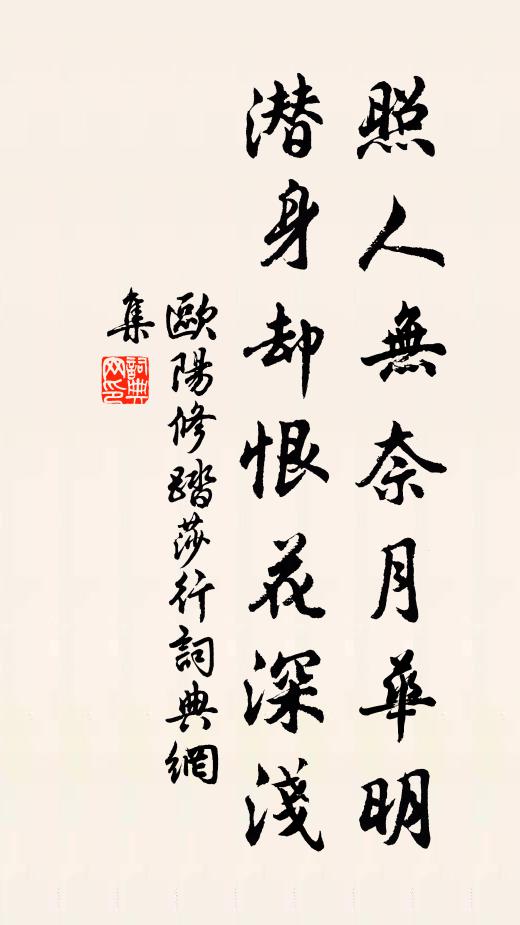 照人無奈月華明
潜身却恨花深淺
歐陽修踏莎行詞典網
集
詞典网印